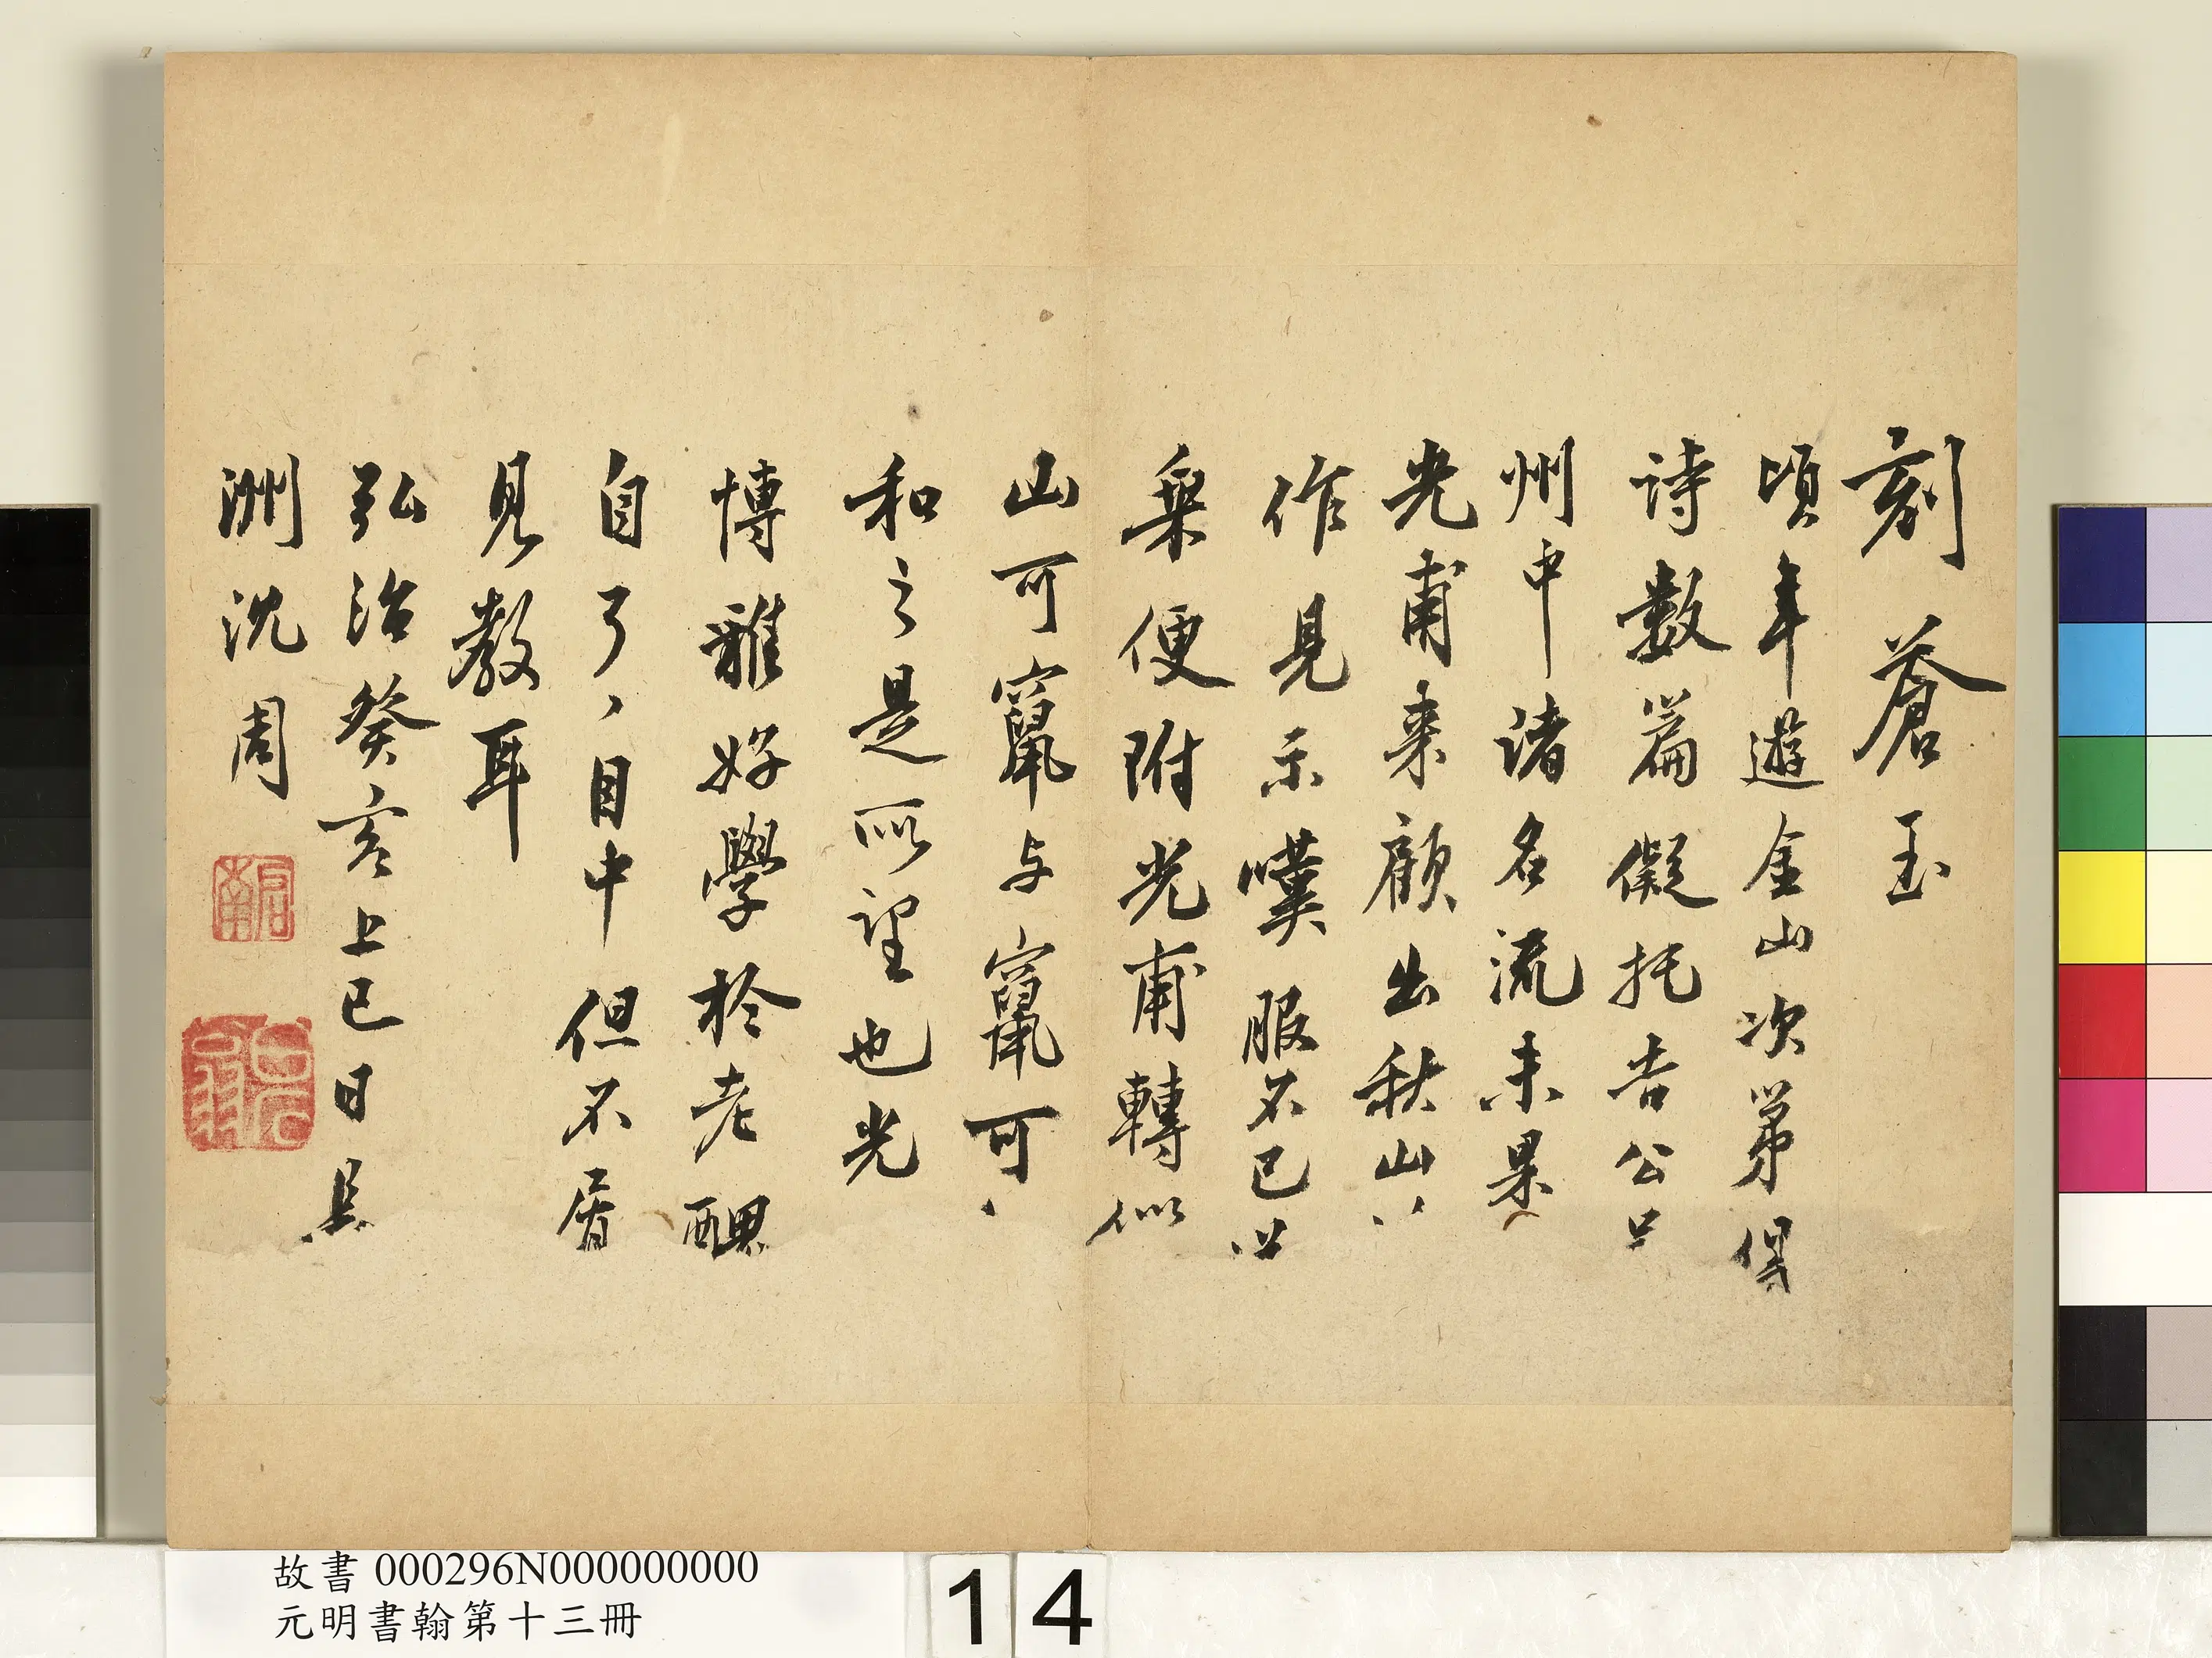 刻蒼玉
頃年遊金山次第得
詩數篇儗托吉公只
州中諸名流未果
光甫來顧出秋山八
作見示嘆服不已以
槀便附光甫轉似
山可竄与竄可、
和之是所望也光
博雅好學於老醜
自了、目中但不屑
見教耳
弘治癸亥上巳日長
洲沈周
啟南
石田
故書 000296N000000000
元明書翰第十三冊
14